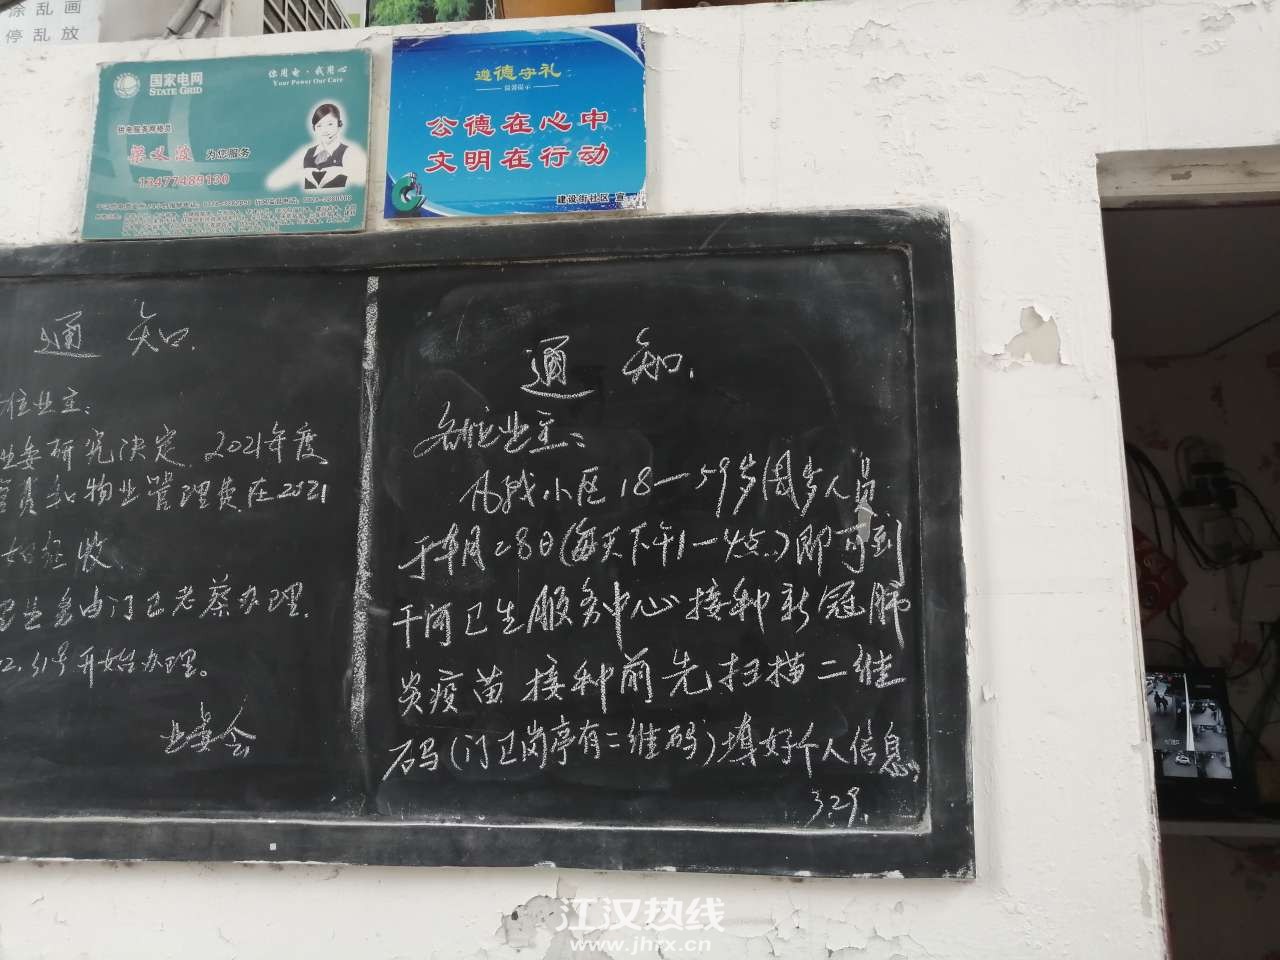 涂乱画
停乱放
国家电网
STATE GRID
你用电·我用心
Your Power Our Care
供电服务网格员
梁以波 为您服务
13477489130
遵德守礼
温馨提示
公德在心中
文明在行动
建设街社区 宣
通知
位业主:
业委研究决定 2021年度
和物业管理费在2021
收
由门卫老蔡办理.
12.31号开始办理。
业委会
通知.
各位业主:
凡我小区18—59岁周岁人员
于本月28日(每天下午1—4点)即可到
干河卫生服务中心接种新冠肺
炎疫苗接种前先扫描二维
码(门卫岗亭有二维码)填好个人信息,
3.29.
江汉热线
www.jhrx.cn